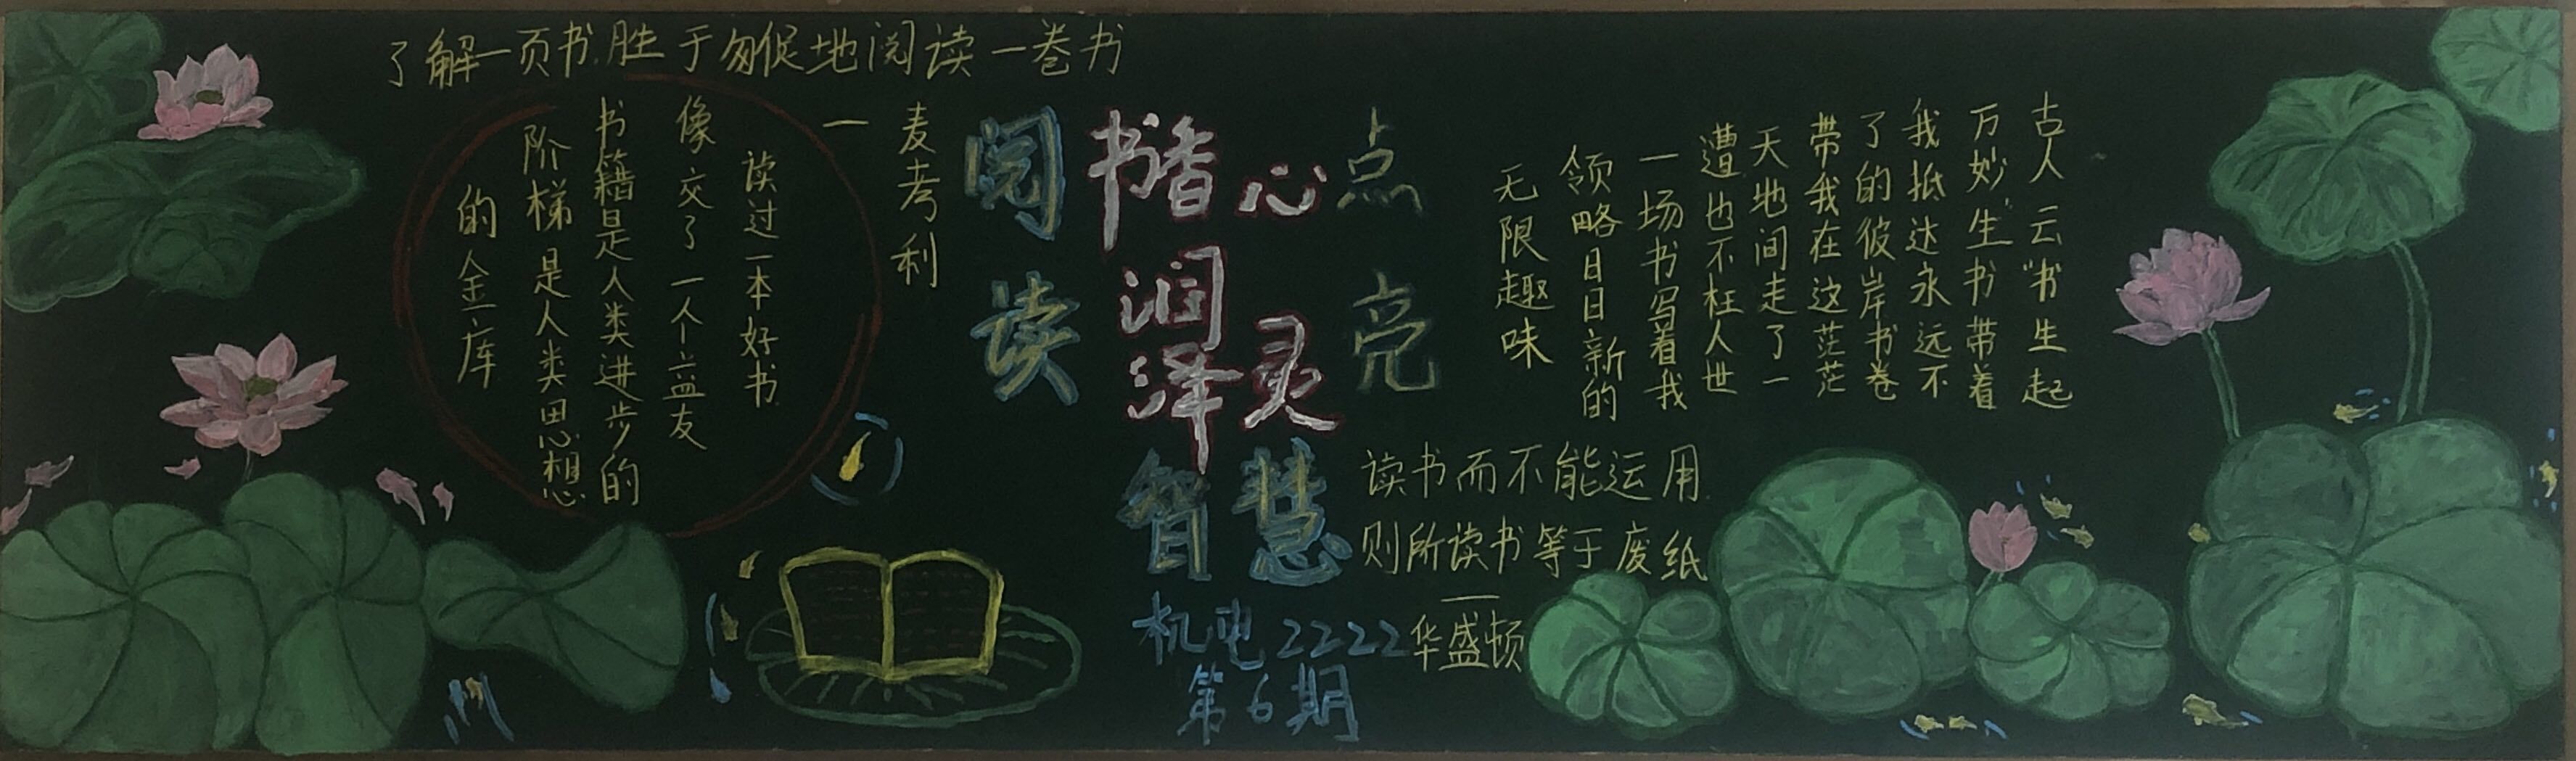 了解一页书胜于匆促地阅读一卷书
一
麦考利
读过一本好书
像交了一个益友
书籍是人类进步的
阶梯是人类思想
的金库
阅读
点亮
书香
润泽
心灵
智慧
机电2222
第6期
古人云“书生起
万妙生”书带着
我抵达永远不
了的彼岸书卷
带我在这茫茫
天地间走了一
遭也不枉人世
一场书写着我
领略日日新的
无限趣味
读书而不能运用
则所读书等于废纸
一
华盛顿